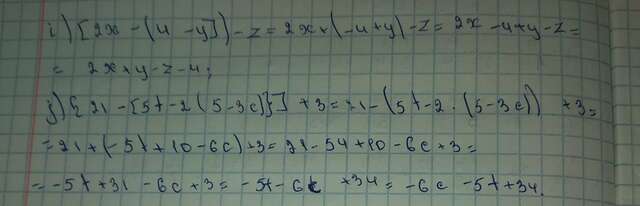 i) [2x - (4 - y]) - z = 2x + (-4 + y) - z = 2x - 4 + y - z =
= 2x + y - z - 4;
j) { 21 - [5t - 2 (5 - 3c)}] + 3 = 21 - (5t - 2 · (5 - 3c)) + 3 =
= 21 + (-5t + 10 - 6c) + 3 = 21 - 5t + 10 - 6c + 3 =
= -5t + 31 - 6c + 3 = -5t - 6c + 34 = -6c - 5t + 34.